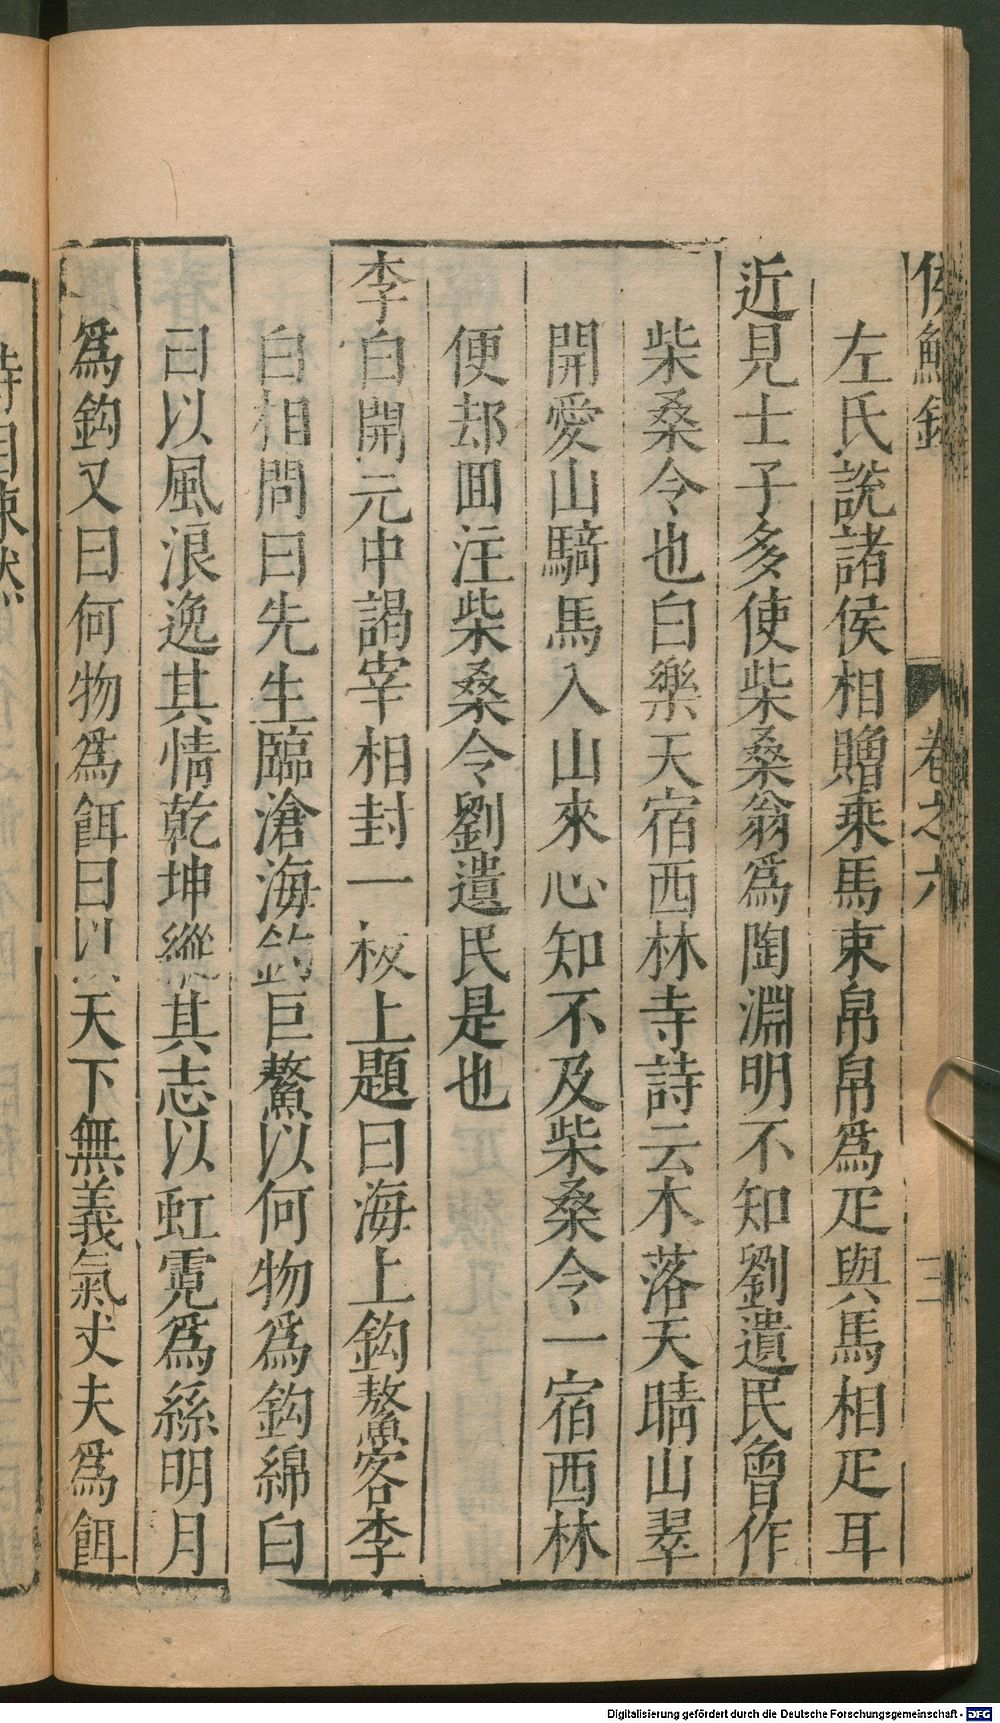 侯鯖録 卷之六 三
左氏說諸侯相贈乗馬束帛帛爲疋與馬相疋耳
近見士子多使柴桑翁爲陶淵明不知劉遺民曾作
柴桑令也白樂天宿西林寺詩云木落天晴山翠
開愛山騎馬入山來心知不及柴桑令一宿西林
便却囬注柴桑令劉遺民是也
李白開元中謁宰相封一板上題曰海上鈎鰲客李
白相問曰先生臨滄海釣巨鰲以何物爲鈎綿白
曰以風浪逸其情乾坤縱其志以虹霓爲絲明月
爲鈎又曰何物爲餌曰以天下無義氣丈夫爲餌
時相悚然
Digitalisierung gefördert durch die Deutsche Forschungsgemeinschaft - DFG